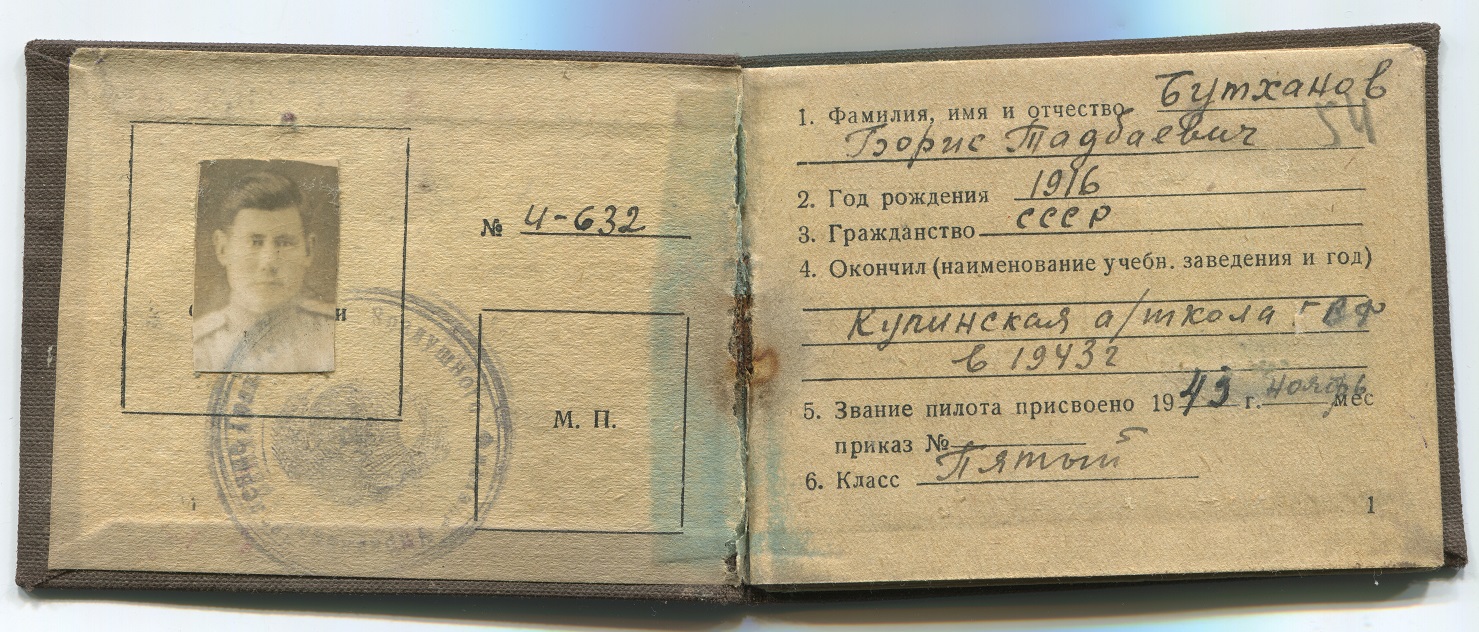 № Ч-632
М. П.
1. Фамилия, имя и отчество Бутханов
Борис Тадбаевич
54
2. Год рождения 1916
3. Гражданство СССР
4. Окончил (наименование учебн. заведения и год)
Купинская а/школа ГВФ
в 1943 г
5. Звание пилота присвоено 1943 г. ноябрь мес
приказ №
6. Класс Пятый
1